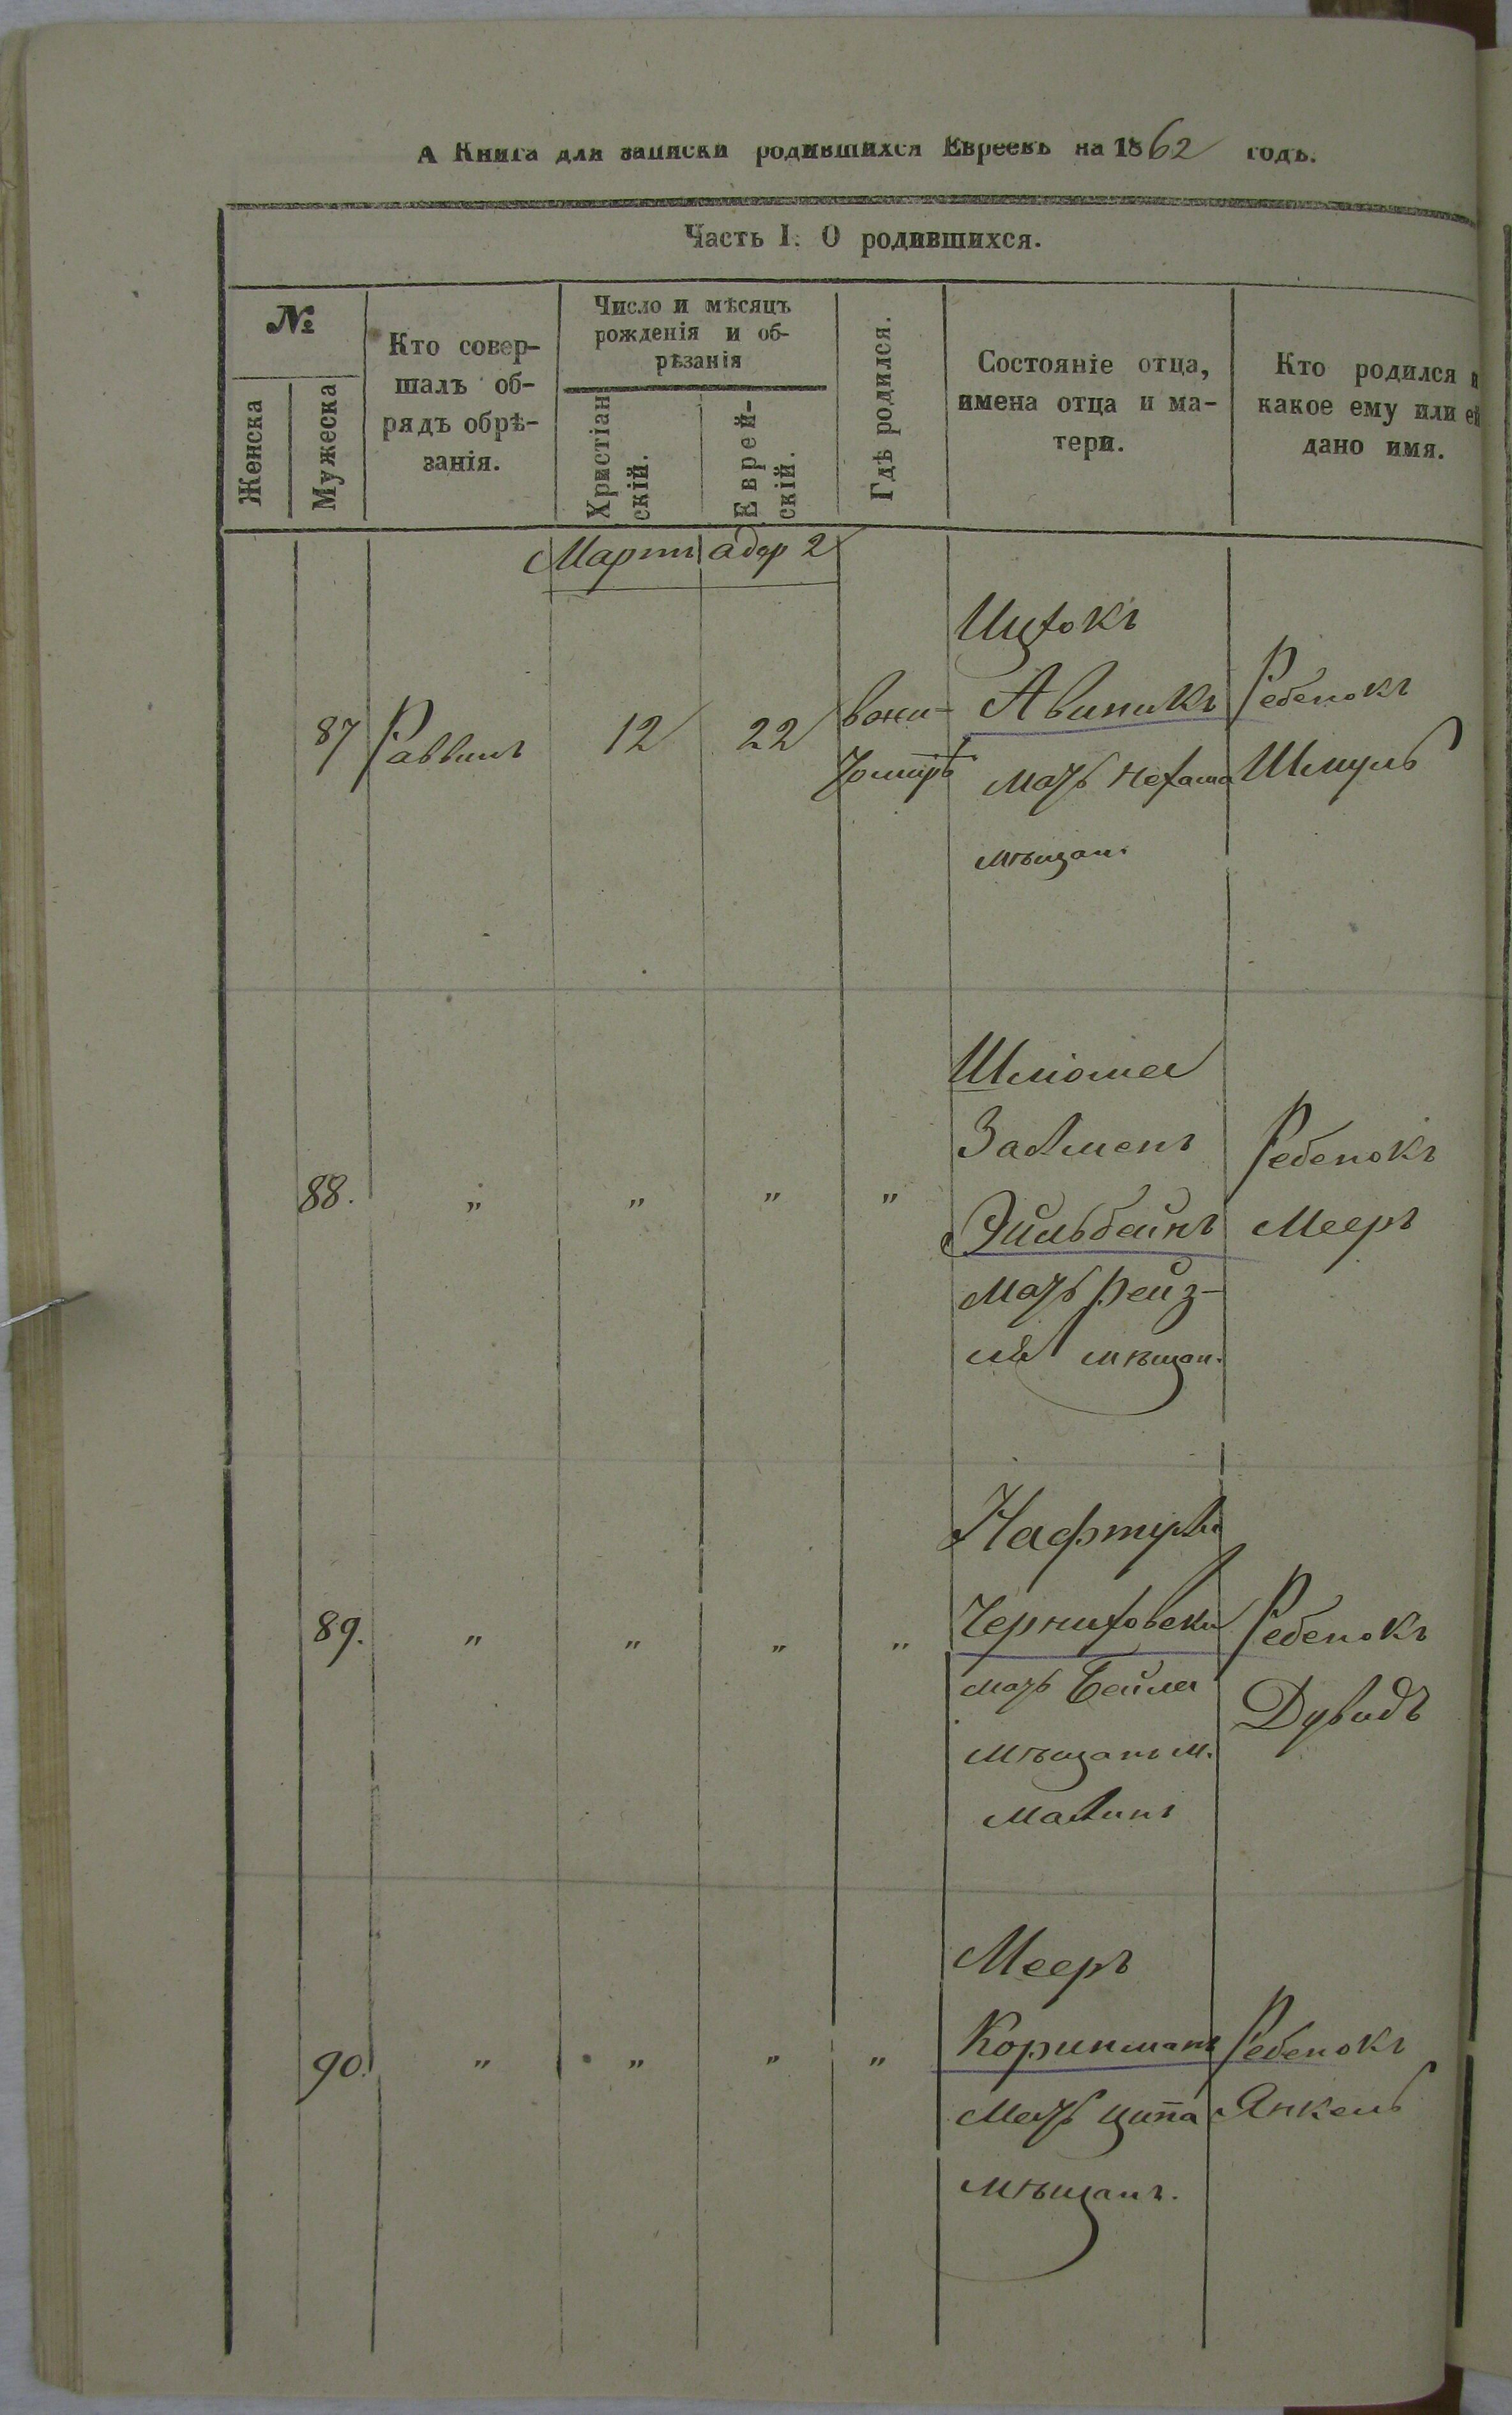 А Книга для записки родившихся Евреевъ на 1862 годъ.
Часть I. О родившихся.
№
Женска
Мужеска
Кто совер-
шалъ об-
рядъ обрѣ-
занія.
Число и мѣсяцъ
рожденія и об-
рѣзанія
Христіан
скій.
Еврей-
скій.
Гдѣ родился.
Состояніе отца,
имена отца и ма-
тери.
Кто родился и
какое ему или ей
дано имя.
Мартъ адар 2
87 Раввинъ 12 22 вжи-
томірѣ
Ицхокъ
Авиникъ
мать Нехама
мѣщан.
Ребенокъ
Шмуль
88. „ „ „ „
Шліома
Залменъ
Эйльбейнъ
мать Рейз-
ля мѣщан.
Ребенокъ
Мееръ
89. „ „ „ „
Нафтула
Черниховски
мать Бейла
мѣщанъ м.
Малинъ
Ребенокъ
Дувидъ
90. „ „ „ „
Мееръ
Коринманъ
Мать Ципа
мѣщанъ.
Ребенокъ
Янкель